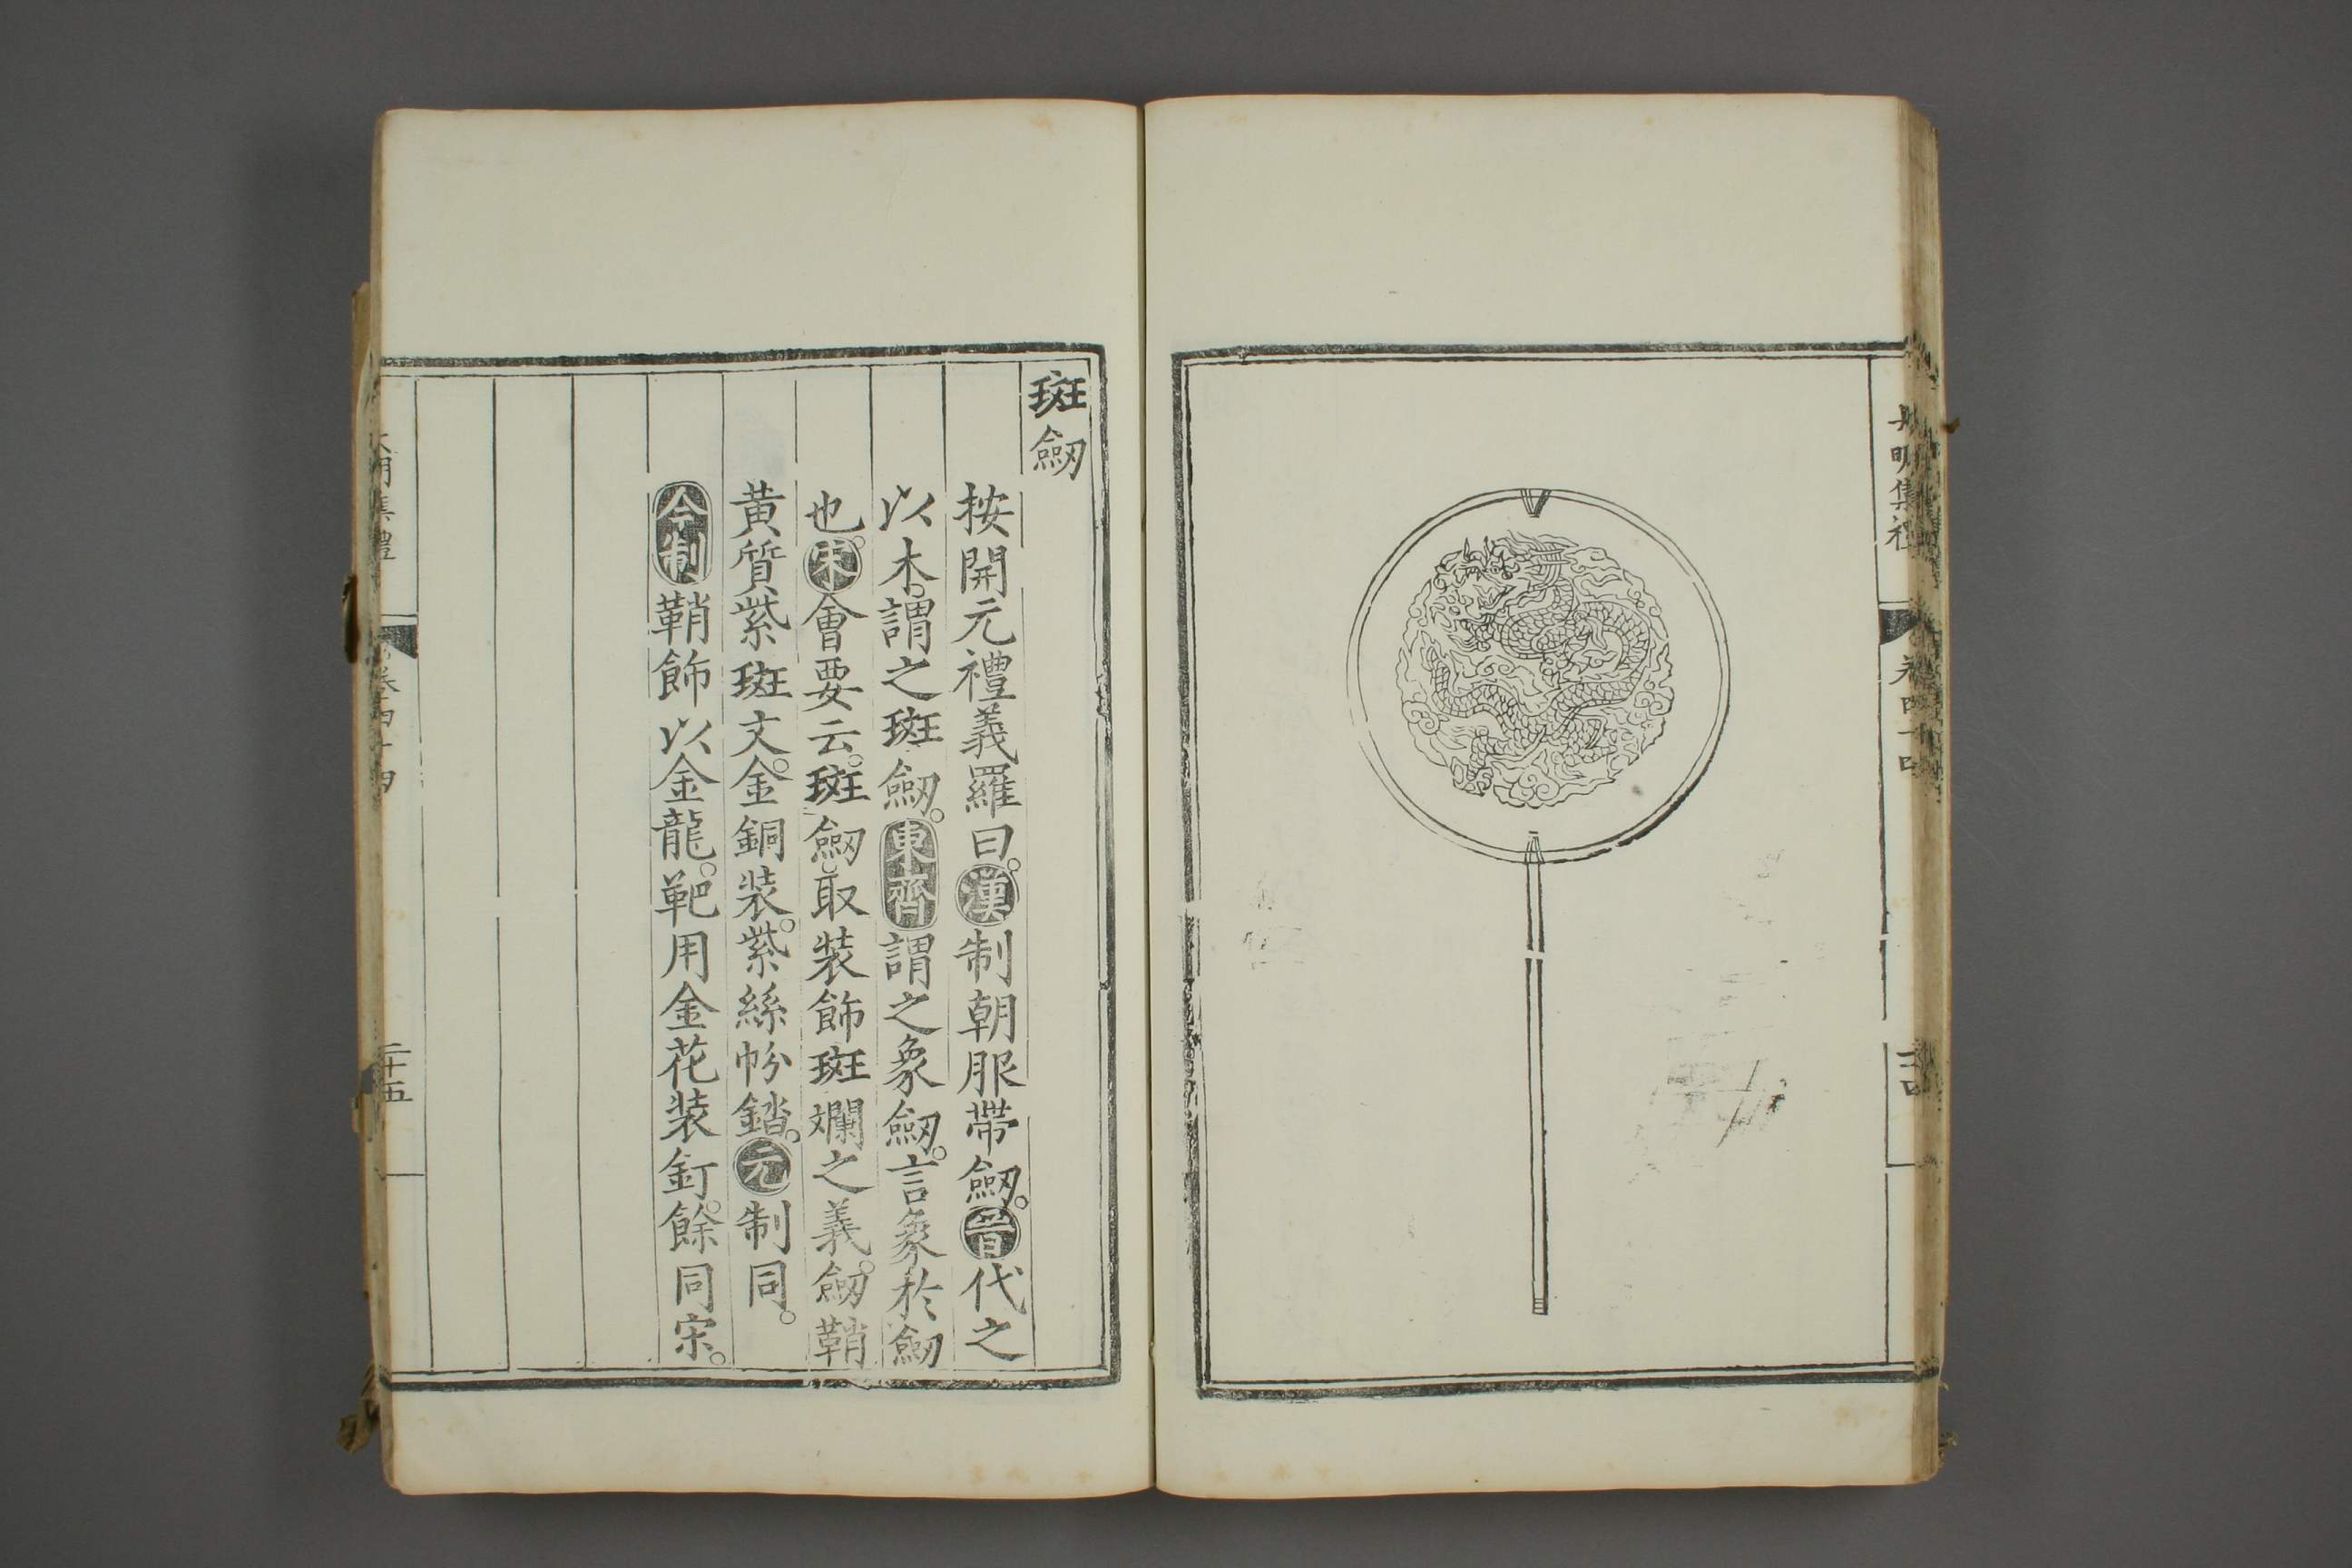 大明集禮
卷四十四
二十四
斑劒
按開元禮義羅曰。漢制朝服帶劒。晉代之
以木。謂之斑劒。東齊謂之象劒。言象於劒
也。宋會要云。斑劒取裝飾斑斕之義。劒鞘
黃質紫斑文。金銅裝。紫絲帉錔。元制同。
今制鞘飾以金龍。靶用金花裝釘。餘同宋。
大明集禮
卷四十四
二十五